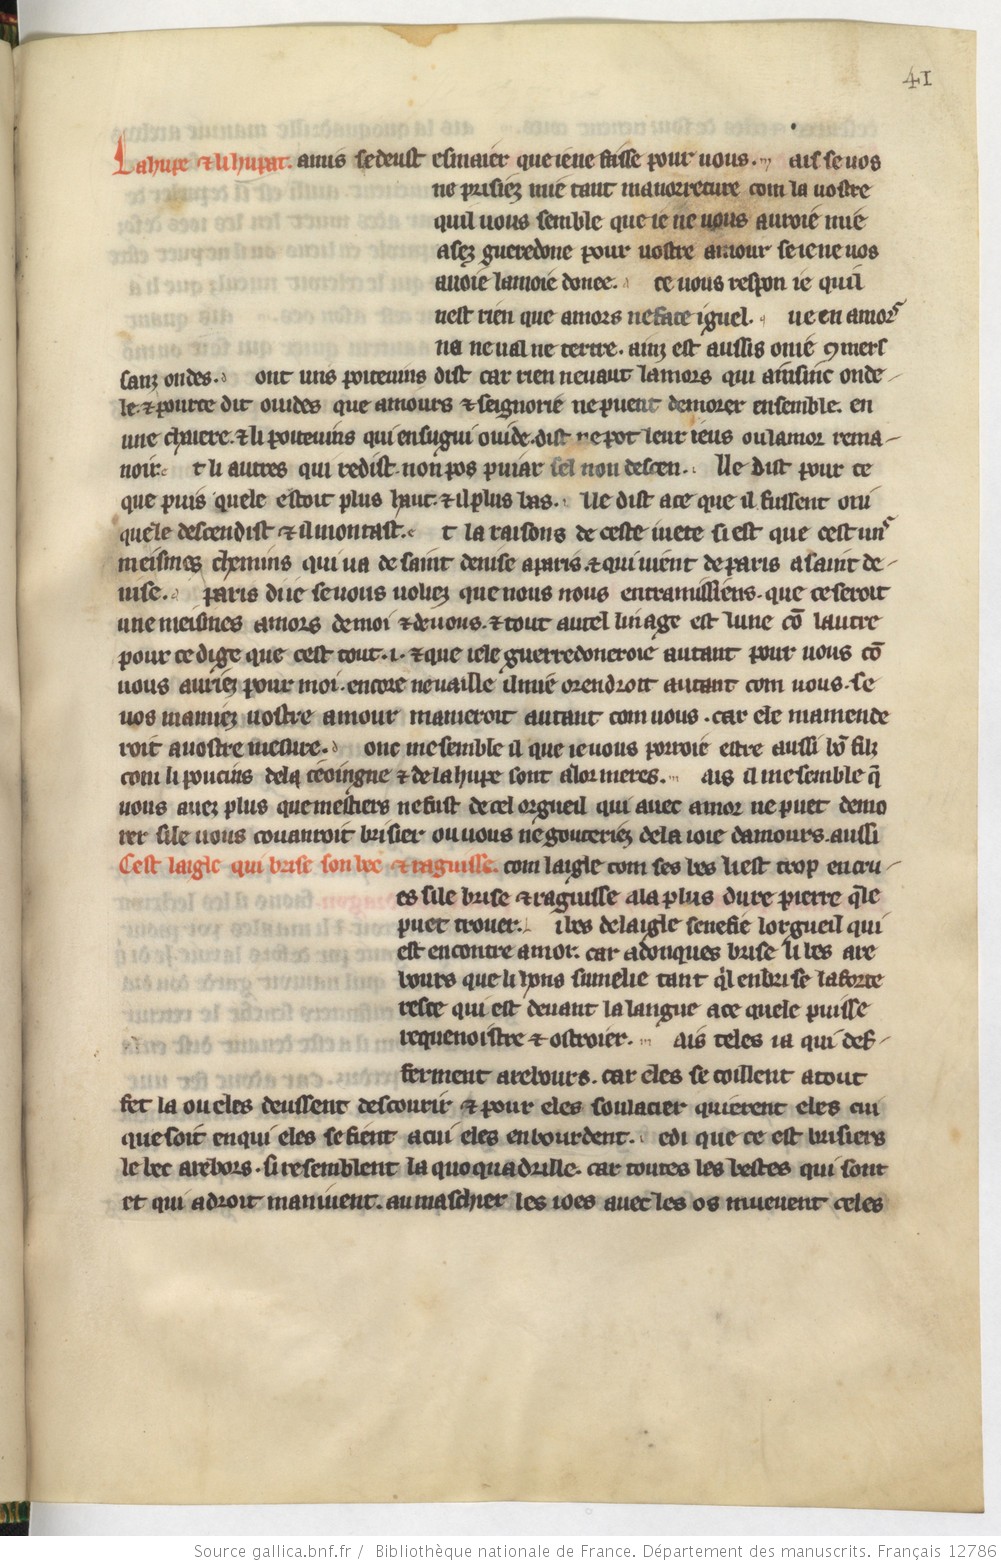 41
La hupe ⁊ li hupat. amis se deust esmaier que ie ne faisse pour uous. ais se uos
ne prisiez mie tant mauorreture com la uostre
quil uous semble que ie ne uous auroie mie
asez gueredone pour uostre amour se ie ne uos
auoie lamoie donee. ce uous respon ie quil
nest rien que amors ne face iguel. ue en amors
na ne ual ne tertre. ainz est aussis onie 9mers
sanz ondes. ont uns poiteuins dist car rien neuaut lamors qui ainsinc onde-
le. ⁊ pource dit ouides que amours ⁊ seignorie ne puent demorer ensemble. en
une chaiere. ⁊ li poiteuins qui ensugui ouide. dist ne pot leur ieus ou lamor rema-
noir. t li autres qui redist. non pos puiar sel non descen. lle dist pour ce
que puis quele estoit plus haut. ⁊ il plus bas. lle dist ace que il fussent oni
quele descendist ⁊ il montast. t la raisons de ceste iuete si est que cest uns
meismes chemins qui ua de saint denise a paris. ⁊ qui uient de paris a saint de-
nise. paris di ie se uous uoliez que nous nous entramissiens. que ce seroit
une meismes amors de moi ⁊ de uous. ⁊ tout autel linage est lune cō lautre
pour ce dige que cest tout .i. ⁊ que iele guerredoneroie autant pour uous cō
uous auriez pour moi. encore ne uaille il mie orendroit autant com uous. se
uos mamiez uostre amour mameroit autant com uous. car ele mamende
roit a uostre mesure. onc me semble il que ie uous porroie estre aussi bō filz
com li poucins de la ceoingne ⁊ de la hupe sont a lor meres. ais il me semble q̄
uous auez plus que mestiers ne fust de cel orgueil qui auec amor ne puet demo
rer si le uous couanroit brisier ou uous ne gouteriez de la ioie damours. aussi
Cest laigle qui brise son bec ⁊ raguisse. com laigle com ses bes li est trop encru-
es si le brise ⁊ raguisse a la plus dure pierre q̄le
puet trouer. i bes de laigle senefie lorgueil qui
est encontre amor. car adonques brise li bes are
bours que li hons sumelie tant q̄l en brise la forte
resce qui est deuant la langue ace quele puisse
requenoistre ⁊ ostroier. ais teles i a qui def-
ferment arebours. car eles se coillent a tout
fet la ou eles deussent descourir ⁊ pour eles soulacier quierent eles cui
que soit en qui eles se fient a cui eles enbourdent. edi que ce est brisiers
le bec arebors. si resemblent la quoquadrille. car toutes les bestes qui sont
et qui a droit maniuent. au maschier les ioes auec les os mueuent celes
Source gallica.bnf.fr / Bibliothèque nationale de France. Département des manuscrits. Français 12786